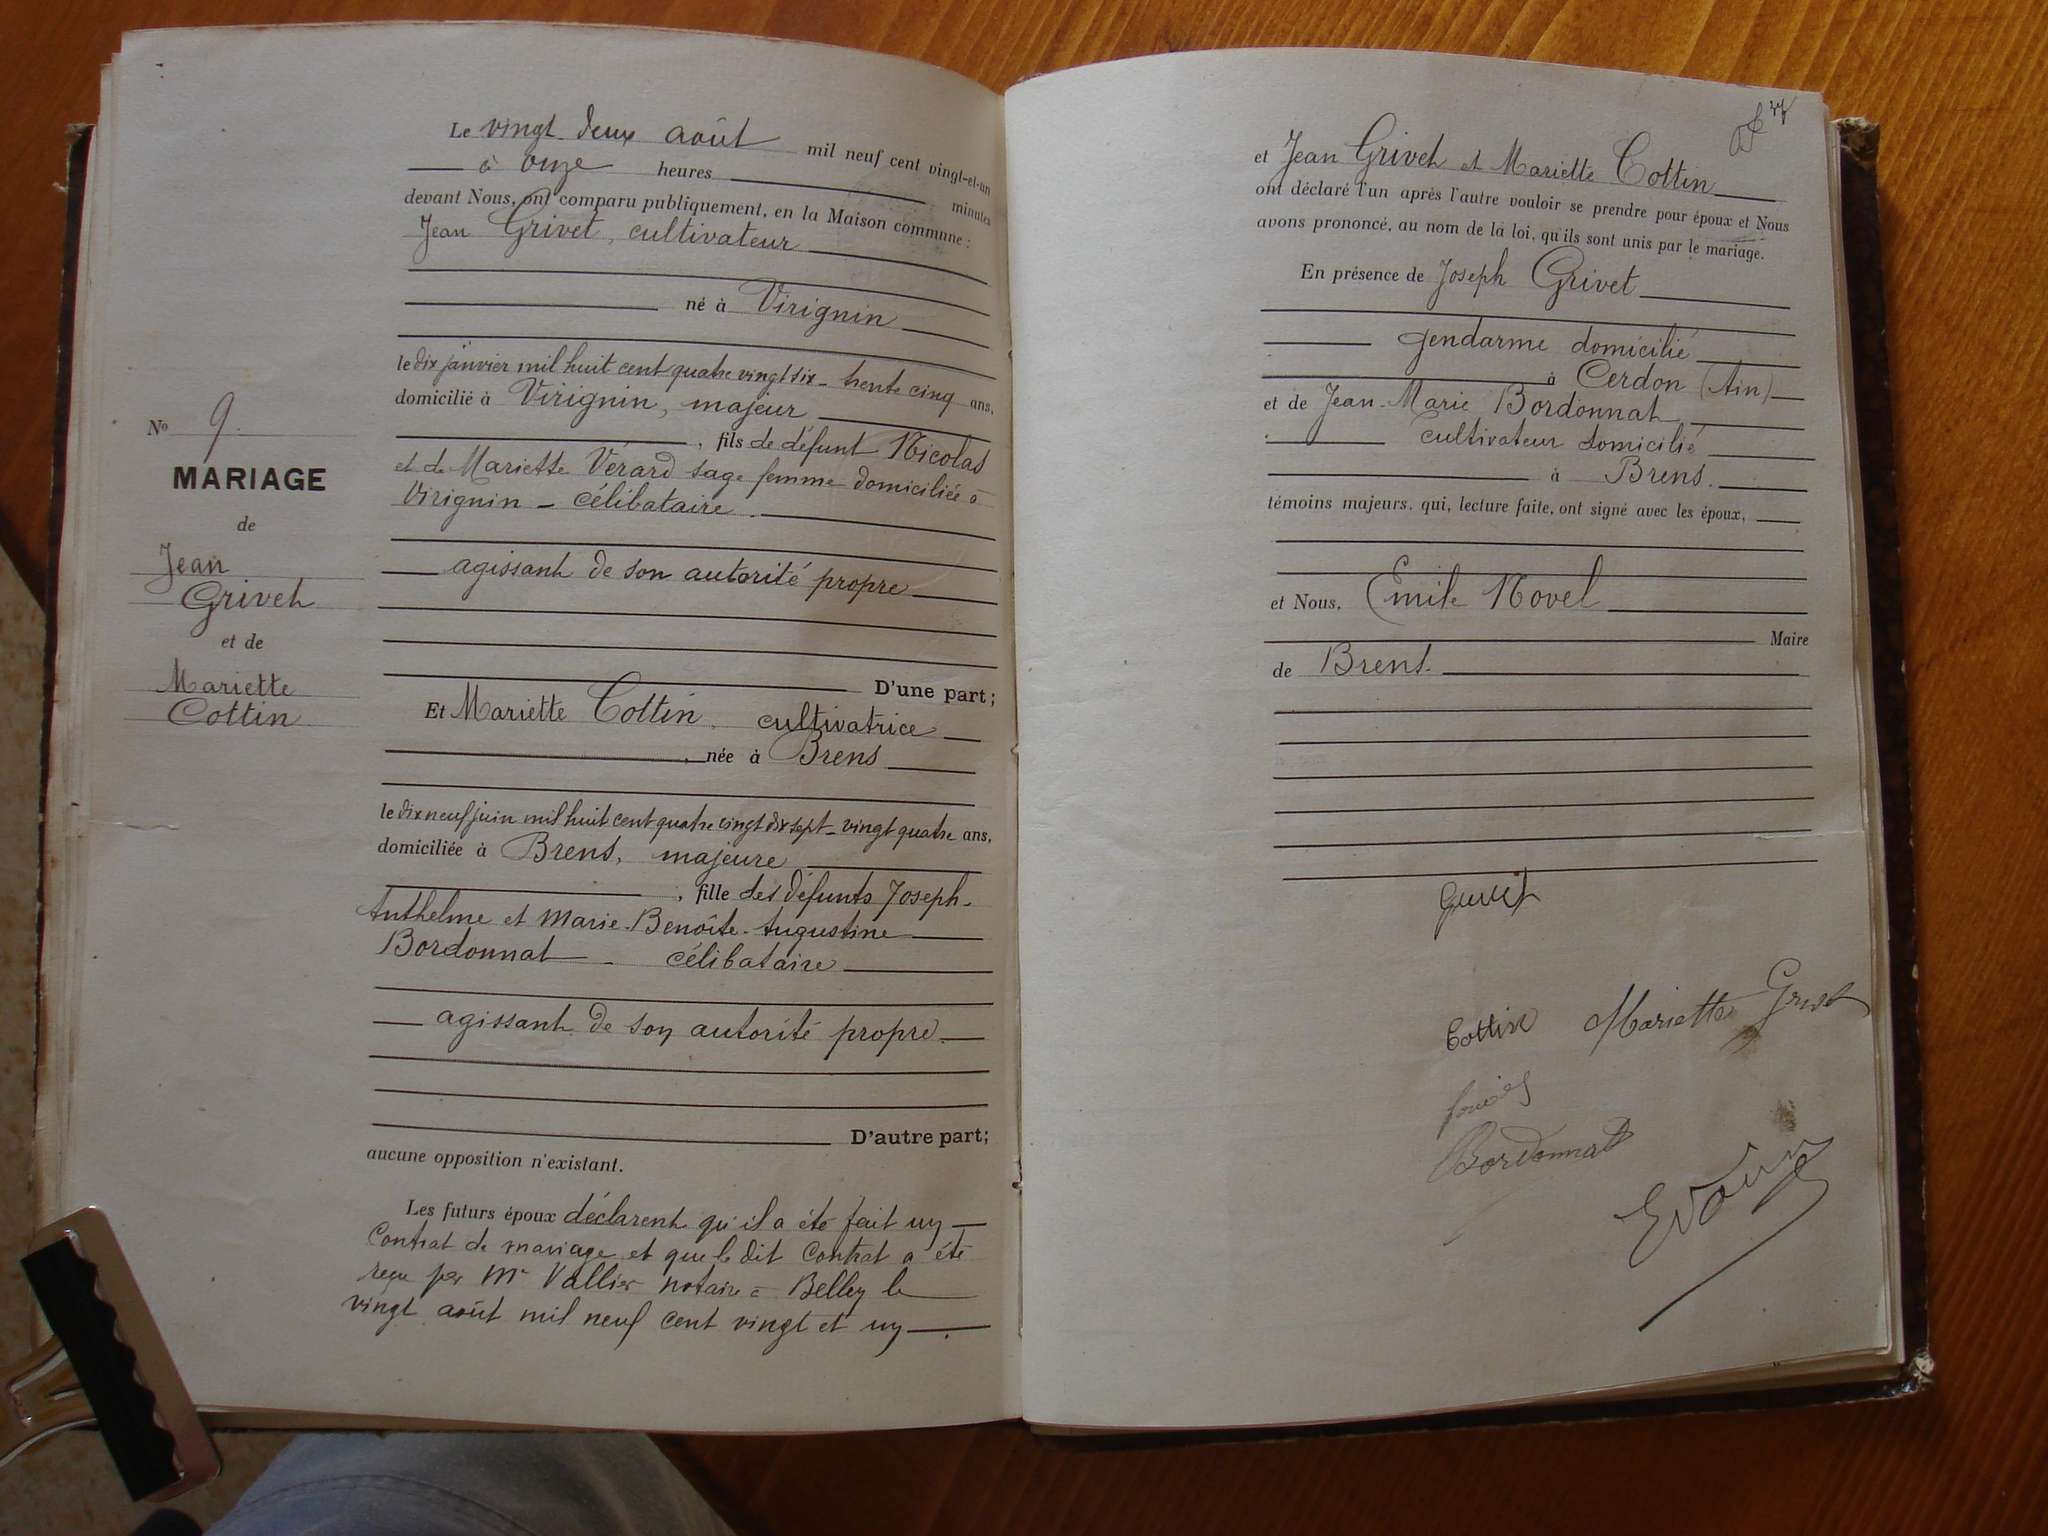 Le vingt deux août mil neuf cent vingt-et-un
à onze heures minutes
devant Nous, ont comparu publiquement, en la Maison commune :
Jean Grivet, cultivateur
né à Virignin
le dix janvier mil huit cent quatre vingt six - trente cinq ans,
domicilié à Virignin, majeur
, fils de défunt Nicolas
et de Mariette Vérard sage femme domiciliée à
Virignin - célibataire.
agissant de son autorité propre
D'une part ;
Et Mariette Cottin, cultivatrice
, née à Brens
le dix neuf juin mil huit cent quatre vingt dix sept - vingt quatre ans,
domiciliée à Brens, majeure
, fille des défunts Joseph-
Anthelme et Marie-Benoîte-Augustine
Bordonnat - célibataire
agissant de son autorité propre
D'autre part ;
aucune opposition n'existant.
Les futurs époux déclarent qu'il a été fait un
contrat de mariage et que le dit contrat a été
reçu par Mr Vallier notaire à Belley le
vingt août mil neuf cent vingt et un
No 9.
MARIAGE
de
Jean
Grivet
et de
Mariette
Cottin
et Jean Grivet et Mariette Cottin
ont déclaré l'un après l'autre vouloir se prendre pour époux et Nous
avons prononcé, au nom de la loi, qu'ils sont unis par le mariage.
En présence de Joseph Grivet
gendarme domicilié
à Cerdon (Ain)
et de Jean-Marie Bordonnat
cultivateur domicilié
à Brens.
témoins majeurs, qui, lecture faite, ont signé avec les époux,
et Nous, Emile Novel
Maire
de Brens.
Grivet
Cottin Mariette Grivet
Bordonnat